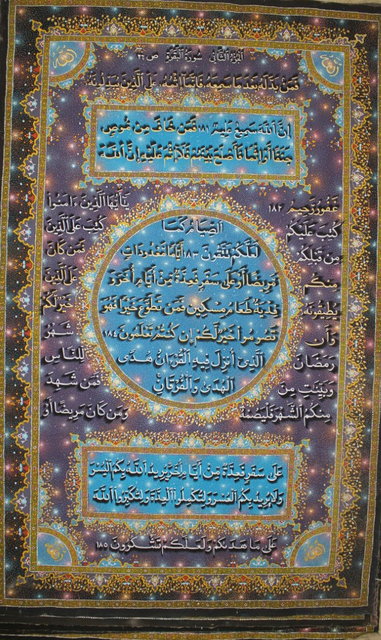 الجزء الثاني سورة البقرة
فمن بدله بعد ما سمعه فإنما إثمه على الذين يبدلونه
إن الله سميع عليم ١٨١ فمن خاف من موص
جنفا أو إثما فأصلح بينهم فلا إثم عليه إن الله
غفور رحيم ١٨٢ يأيها الذين ءامنوا
كتب عليكم الصيام كما كتب على الذين
من قبلكم لعلكم تتقون ١٨٣ أياما معدودات فمن كان
منكم مريضا أو على سفر فعدة من أيام أخر وعلى الذين
يطيقونه فدية طعام مسكين فمن تطوع خيرا فهو خير لكم
وأن تصوموا خير لكم إن كنتم تعلمون ١٨٤ شهر
رمضان الذي أنزل فيه القرءان هدى للناس
وبينات من الهدى والفرقان فمن شهد
منكم الشهر فليصمه ومن كان مريضا أو
على سفر فعدة من أيام أخر يريد الله بكم اليسر
ولا يريد بكم العسر ولتكملوا العدة ولتكبروا الله
على ما هداكم ولعلكم تشكرون ١٨٥